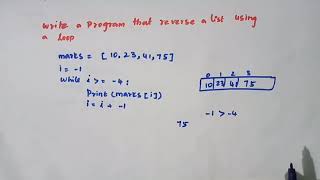 write a program that reverse a list using
a loop
marks = [10,23,41,75]
i = -1
while i >= -4:
print(marks[i])
i = i + -1
0 1 2 3
10 23 41 75
-1 > -4
75